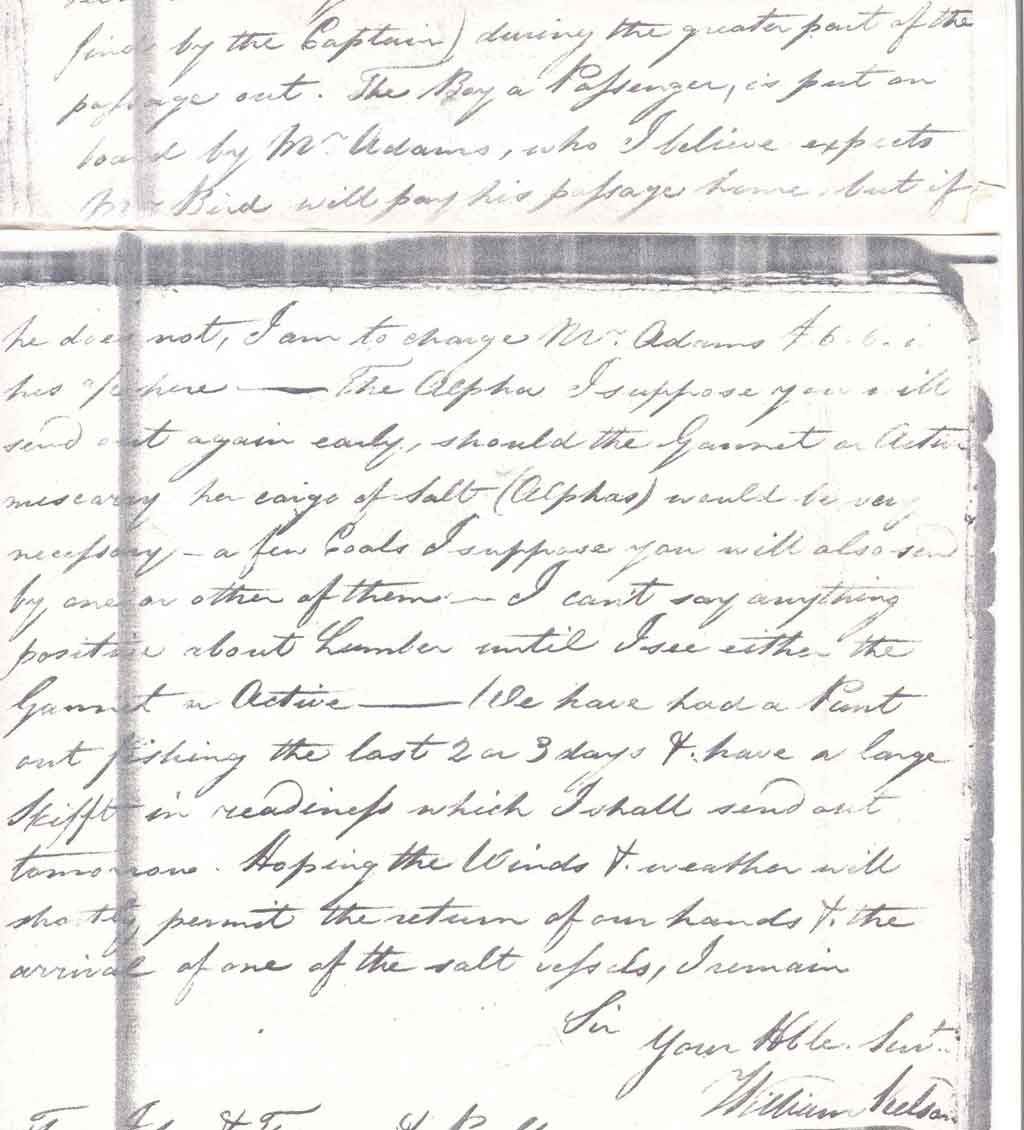 by the Captain) during the greater part of the
passage out. The Boy a Passenger, is put on
board by Mr Adams, who I believe expects
Mr Bird will pay his passage home but if
he does not, I am to charge Mr Adams £6.6.
his a/c here — The Alpha I suppose you will
send out again early, should the Gannet or Active
miscarry her cargo of Salt (Alphas) would be very
necessary – a few Coals I suppose you will also send
by one or other of them – I cant say anything
positive about Lumber until I see either the
Gannet or Active — We have had a Punt
out fishing the last 2 or 3 days &. have a large
Skifft in readiness which I shall send out
tomorrow. Hoping the Winds &. weather will
shortly permit the return of our hands &. the
arrival of one of the salt vessels, I remain
Sir
Your Hble. Servt.
William Nelson